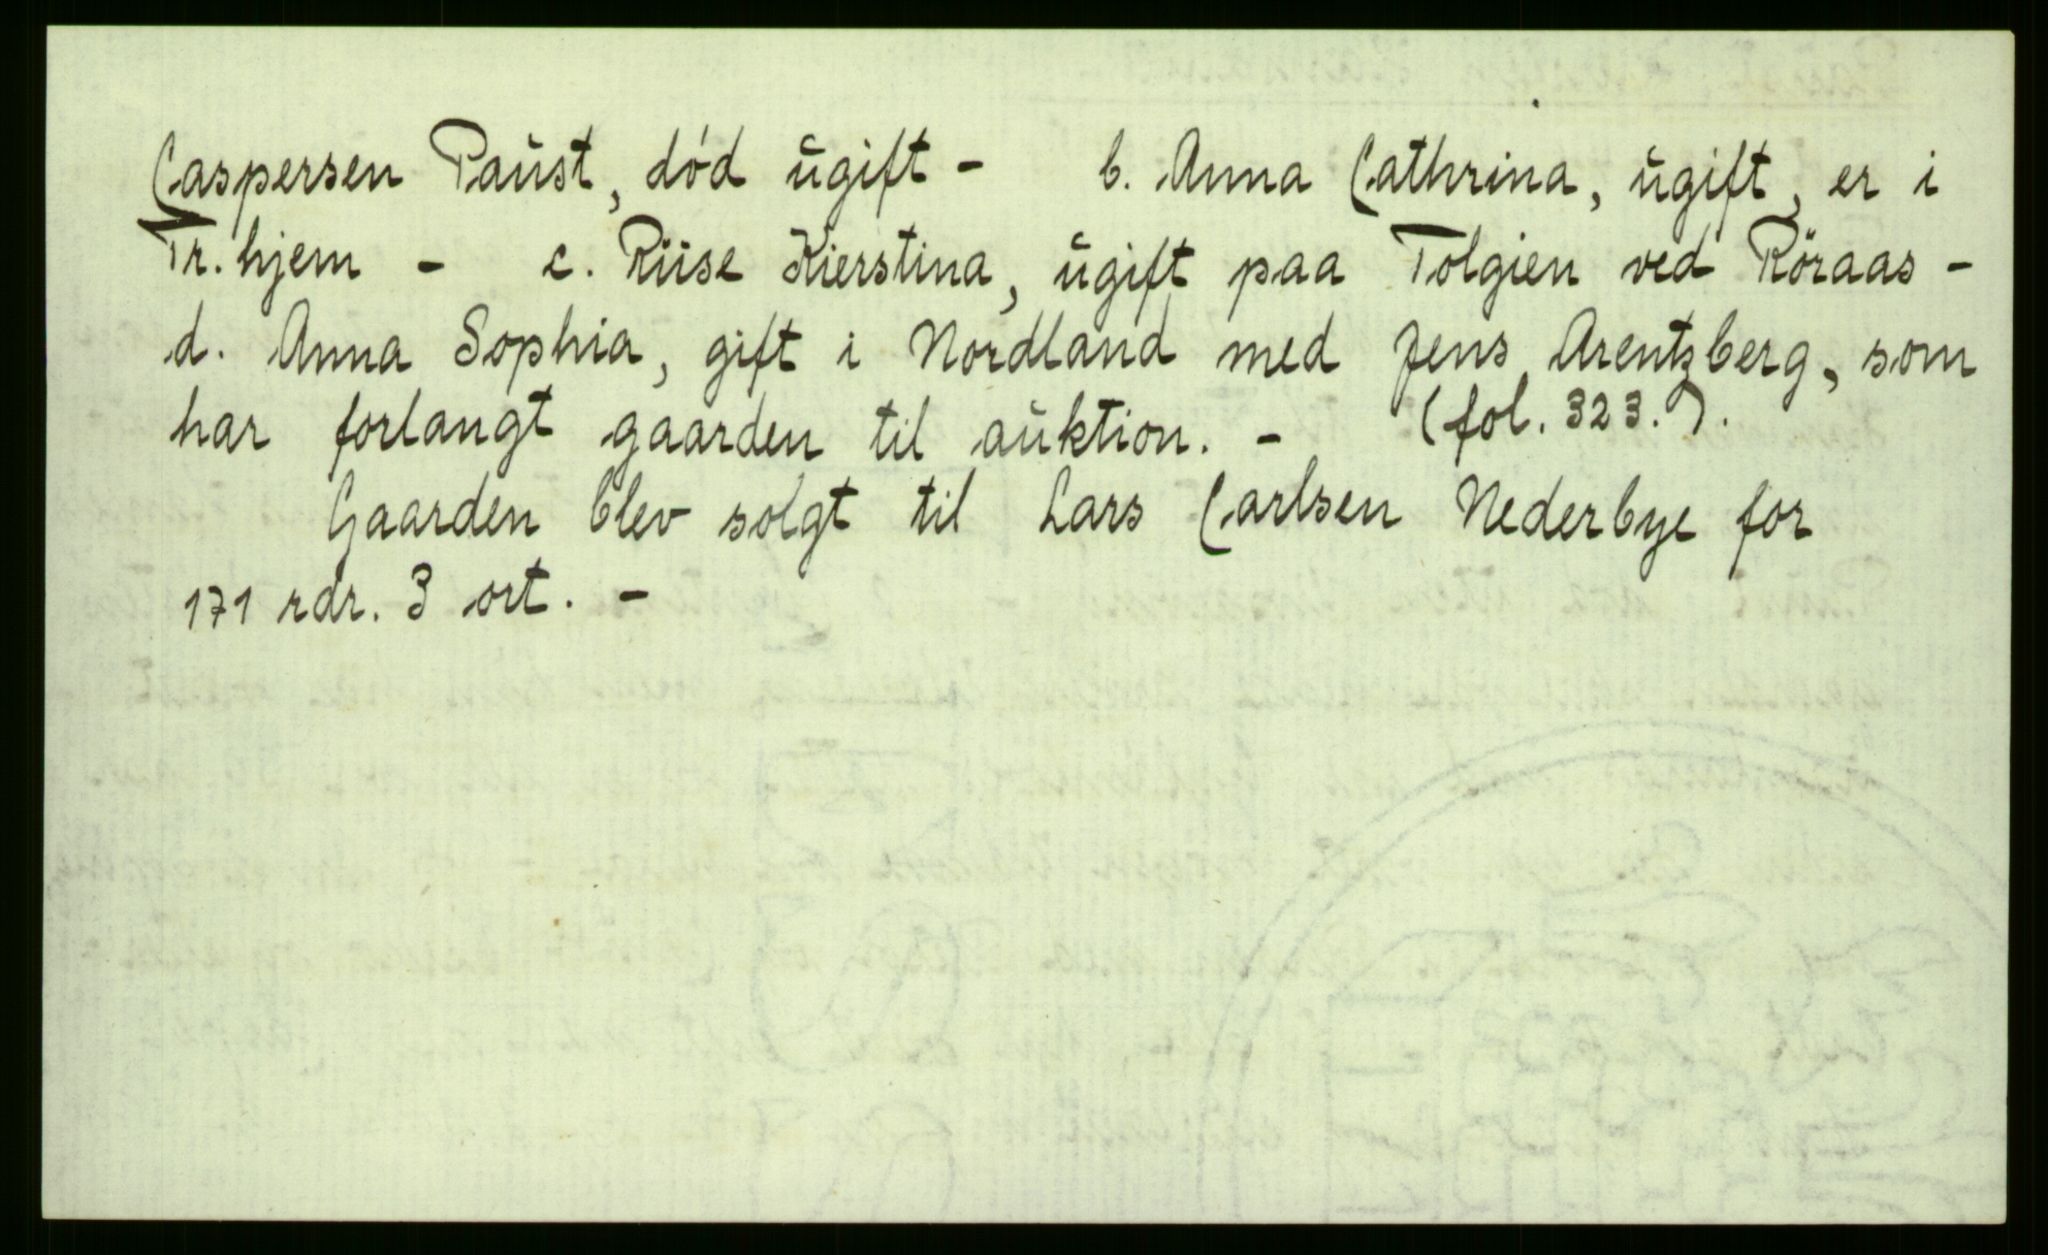 Caspersen Paust, død ugift - b. Anna Cathrina, ugift, er i
Tr.hjem - c. Riise Kierstina, ugift paa Tolgien ved Röraas -
d. Anna Sophia, gift i Nordland med Jens Arentzberg, som
har forlangt gaarden til auktion. - (fol. 323.).
Gaarden blev solgt til Lars Carlsen Nederbye for
171 rdr. 3 ort. -